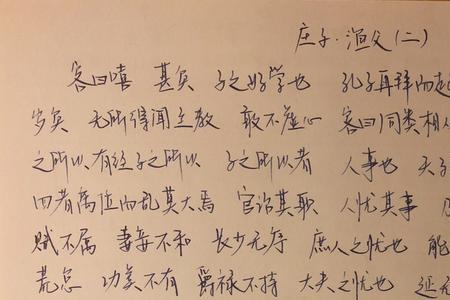 庄子·渔父(二)
客曰嘻 甚矣 子之好学也 孔子再拜而起
岁矣 无所得闻至教 敢不虚心 客曰同类相
之所以有经子之所以 子之所以者 人事也 天子
四者离位而乱莫大焉 官治其职 人忧其事
赋不属 妻妾不和 长少无序 庶人之忧也 能
荒怠 功美不有 爵禄不持 大夫之忧也 廷无